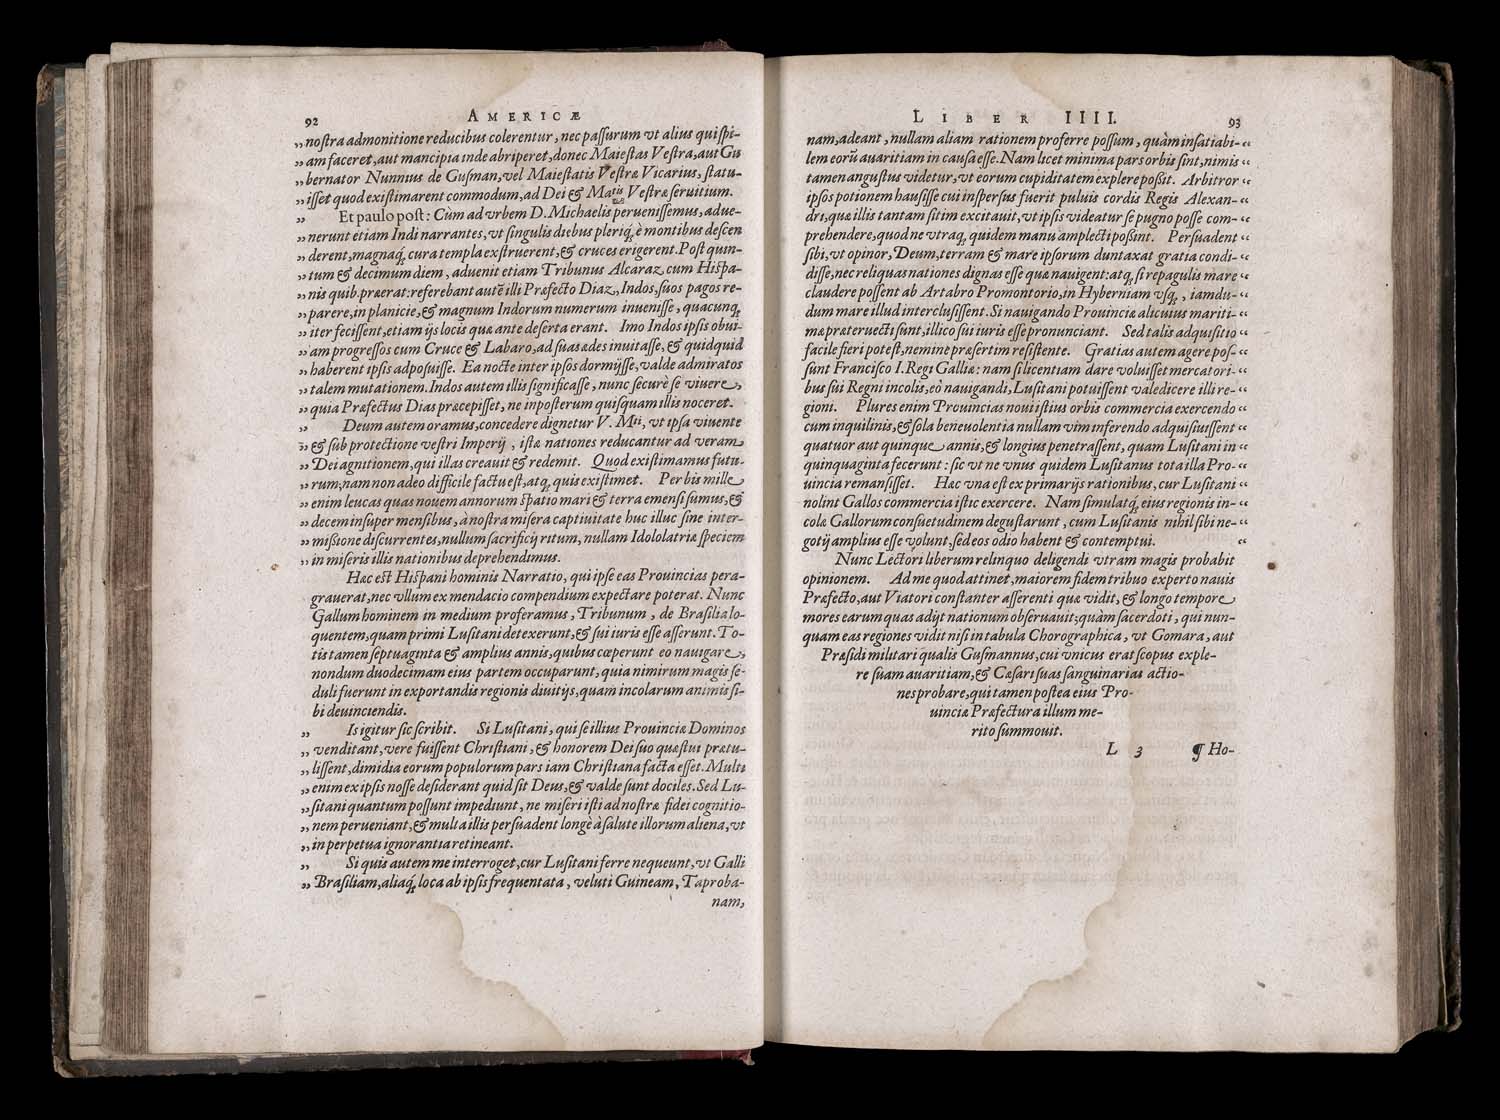 92 AMERICÆ
„ nostra admonitione reducibus colerentur, nec passurum vt alius quispi-
„ am faceret, aut mancipia inde abriperet, donec Maiestas Vestra, aut Gu
„ bernator Nunnus de Gusman, vel Maiestatis Vestræ Vicarius, statu-
„ isset quod existimarent commodum, ad Dei & Matis Vestræ seruitium.
„ Et paulo post: Cùm ad vrbem D. Michaelis peruenissemus, adue-
„ nerunt etiam Indi narrantes, vt singulis diebus pleriq; è montibus descen
„ derent, magnaq; cura templa exstruerent, & cruces erigerent. Post quin-
„ tum & decimum diem, aduenit etiam Tribunus Alcaraz cum Hispa-
„ nis quib. præerat: referebant autē illi Præfecto Diaz, Indos, suos pagos re-
„ parere, in planicie, & magnum Indorum numerum inuenisse, quacunq;
„ iter fecissent, etiam ijs locis quæ ante deserta erant. Imo Indos ipsis obui-
„ am progressos cum Cruce & Labaro, ad suas ædes inuitasse, & quidquid
„ haberent ipsis adposuisse. Ea nocte inter ipsos dormijsse, valde admiratos
„ talem mutationem. Indos autem illis significasse, nunc securè se viuere,
„ quia Præfectus Dias præcepisset, ne inposterum quisquam illis noceret.
„ Deum autem oramus, concedere dignetur V. Mti, vt ipsa viuente
„ & sub protectione vestri Imperij, istæ nationes reducantur ad veram
„ Dei agnitionem, qui illas creauit & redemit. Quod existimamus futu-
„ rum; nam non adeo difficile factu est, atq; quis existimet. Per bis mille
„ enim leucas quas nouem annorum spatio mari & terra emensi sumus, &
„ decem insuper mensibus, à nostra misera captiuitate huc illuc sine inter-
„ missione discurrentes, nullum sacrificij ritum, nullam Idololatriæ speciem
„ in miseris illis nationibus deprehendimus.
Hæc est Hispani hominis Narratio, qui ipse eas Prouincias pera-
grauerat, nec vllum ex mendacio compendium expectare poterat. Nunc
Gallum hominem in medium proferamus, Tribunum, de Brasilia lo-
quentem, quam primi Lusitani detexerunt, & sui iuris esse asserunt. To-
tis tamen septuaginta & amplius annis, quibus cœperunt eo nauigare,
nondum duodecimam eius partem occuparunt, quia nimirum magis se-
duli fuerunt in exportandis regionis diuitijs, quam incolarum animis si-
bi deuinciendis.
„ Is igitur sic scribit. Si Lusitani, qui se illius Prouinciæ Dominos
„ venditant, vere fuissent Christiani, & honorem Dei suo quæstui prætu-
„ lissent, dimidia eorum populorum pars iam Christiana facta esset. Multi
„ enim ex ipsis nosse desiderant quid sit Deus, & valde sunt dociles. Sed Lu-
„ sitani quantum possunt impediunt, ne miseri isti ad nostræ fidei cognitio-
„ nem perueniant, & multa illis persuadent longè à salute illorum aliena, vt
„ in perpetua ignorantia retineant.
„ Si quis autem me interroget, cur Lusitani ferre nequeunt, vt Galli
„ Brasiliam, aliaq; loca ab ipsis frequentata, veluti Guineam, Taproba-
nam,
LIBER IIII. 93
nam, adeant, nullam aliam rationem proferre possum, quàm insatiabi- “
lem eorū auaritiam in causa esse. Nam licet minima pars orbis sint, nimis “
tamen angustus videtur, vt eorum cupiditatem explere possit. Arbitror “
ipsos potionem hausisse cui inspersus fuerit puluis cordis Regis Alexan- “
dri, quæ illis tantam sitim excitauit, vt ipsis videatur se pugno posse com- “
prehendere, quod ne vtraq; quidem manu amplecti possint. Persuadent “
sibi, vt opinor, Deum, terram & mare ipsorum duntaxat gratia condi- “
disse, nec reliquas nationes dignas esse quæ nauigent: atq; si repagulis mare “
claudere possent ab Artabro Promontorio, in Hyberniam vsq;, iamdu- “
dum mare illud interclusissent. Si nauigando Prouinciæ alicuius mariti- “
mæ præteruecti sunt, illico sui iuris esse pronunciant. Sed talis adquisitio “
facile fieri potest, nemine præsertim resistente. Gratias autem agere pos- “
sunt Francisco I. Regi Galliæ: nam si licentiam dare voluisset mercatori- “
bus sui Regni incolis, eò nauigandi, Lusitani potuissent valedicere illi re- “
gioni. Plures enim Prouincias noui istius orbis commercia exercendo “
cum inquilinis, & sola beneuolentia nullam vim inferendo adquisiuissent “
quatuor aut quinque annis, & longius penetrassent, quam Lusitani in “
quinquaginta fecerunt: sic vt ne vnus quidem Lusitanus tota illa Pro- “
uincia remansisset. Hæc vna est ex primarijs rationibus, cur Lusitani “
nolint Gallos commercia istic exercere. Nam simulatq; eius regionis in- “
colæ Gallorum consuetudinem degustarunt, cum Lusitanis nihil sibi ne- “
gotij amplius esse volunt, sed eos odio habent & contemptui. “
Nunc Lectori liberum relinquo deligendi vtram magis probabit
opinionem. Ad me quod attinet, maiorem fidem tribuo experto nauis
Præfecto, aut Viatori constanter asserenti quæ vidit, & longo tempore
mores earum quas adijt nationum obseruauit; quàm sacerdoti, qui nun-
quam eas regiones vidit nisi in tabula Chorographica, vt Gomara, aut
Præsidi militari qualis Gusmannus, cui vnicus erat scopus exple-
re suam auaritiam, & Cæsari suas sanguinarias actio-
nes probare, qui tamen postea eius Pro-
uinciæ Præfectura illum me-
rito summouit.
L 3 ¶ Ho-